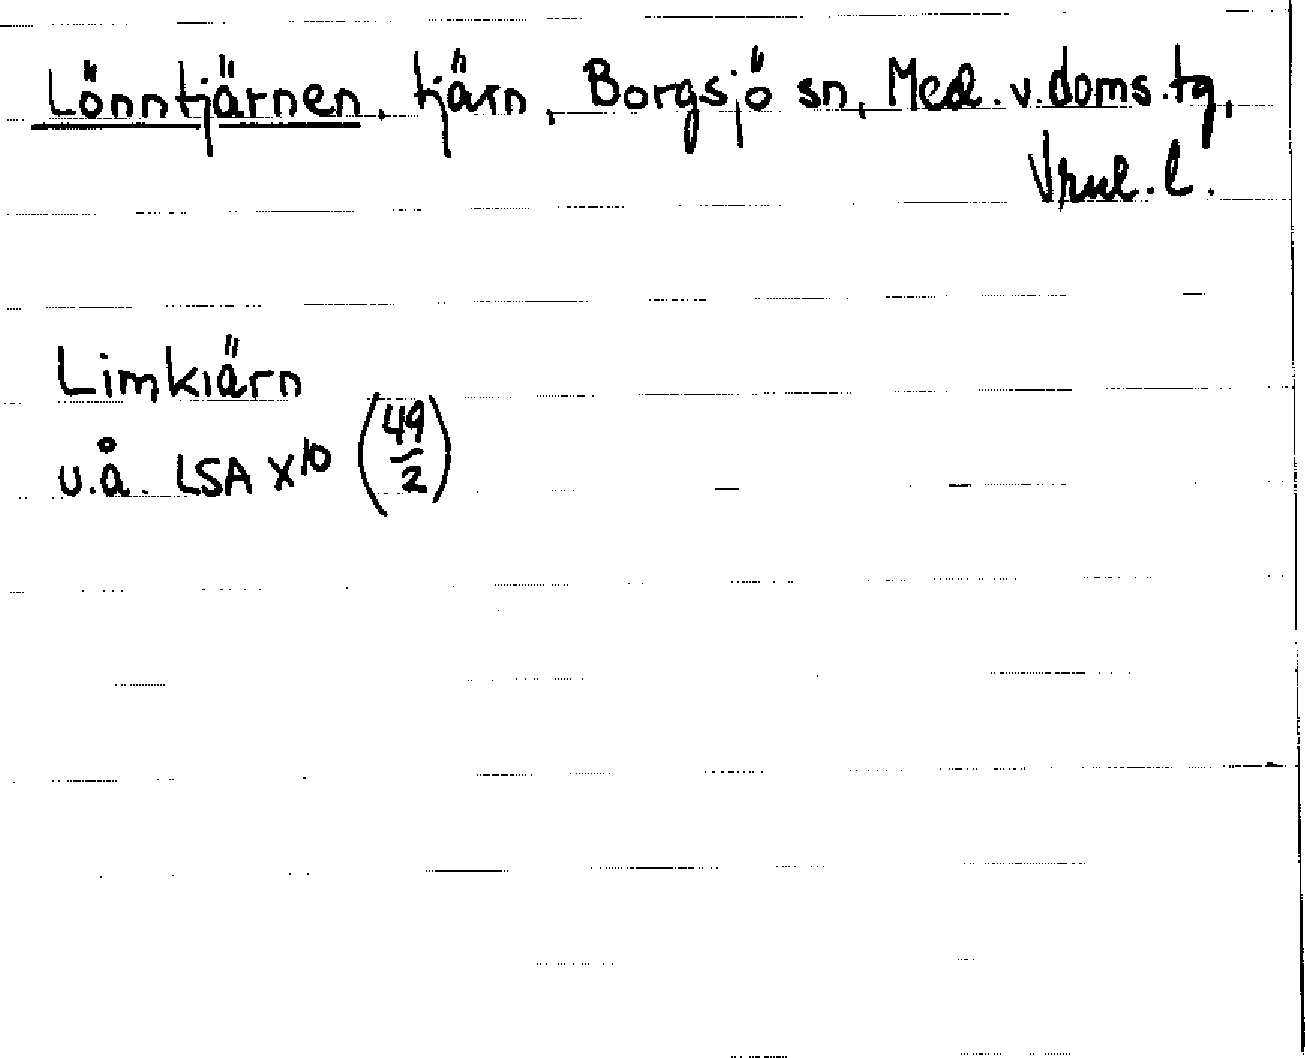 Lönntjärnen. tjärn, Borgsjö sn, Med. v. doms. tg,
Vnl. l.
Limkiärn
u.å. LSA X10 (49/2)